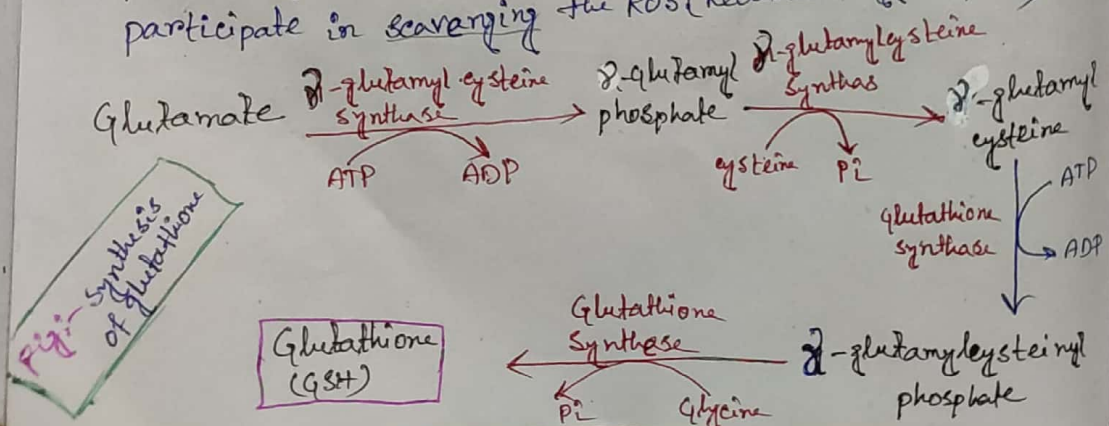 participate in scavanging the ROS
Glutamate
γ-glutamyl cysteine
synthase
ATP ADP
γ-glutamyl
phosphate
γ-glutamylcysteine
synthas
cysteine Pi
γ-glutamyl
cysteine
glutathione
synthase
ATP
ADP
γ-glutamylcysteinyl
phosphate
Glutathione
Synthase
Pi Glycine
Glutathione
(GSH)
Fig:- Synthesis
of glutathione